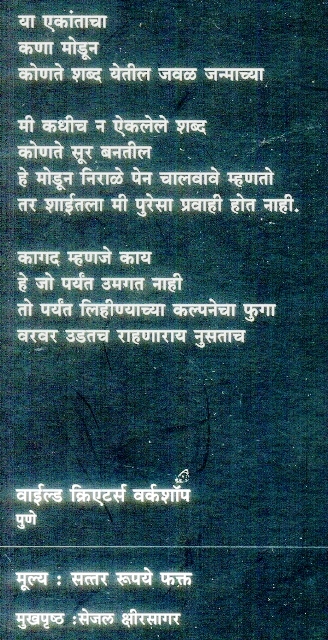 या एकांताचा
कणा मोडून
कोणते शब्द येतील जवळ जन्माच्या
मी कधीच न ऐकलेले शब्द
कोणते सूर बनतील
हे मोडून निराळे पेन चालवावे म्हणतो
तर शाईतला मी पुरेसा प्रवाही होत नाही.
कागद म्हणजे काय
हे जो पर्यंत उमगत नाही
तो पर्यंत लिहीण्याच्या कल्पनेचा फुगा
वरवर उडतच राहणाराय नुसताच
वाईल्ड क्रिएटर्स वर्कशॉप
पुणे
मूल्य : सत्तर रूपये फक्त
मुखपृष्ठ :सेजल क्षीरसागर